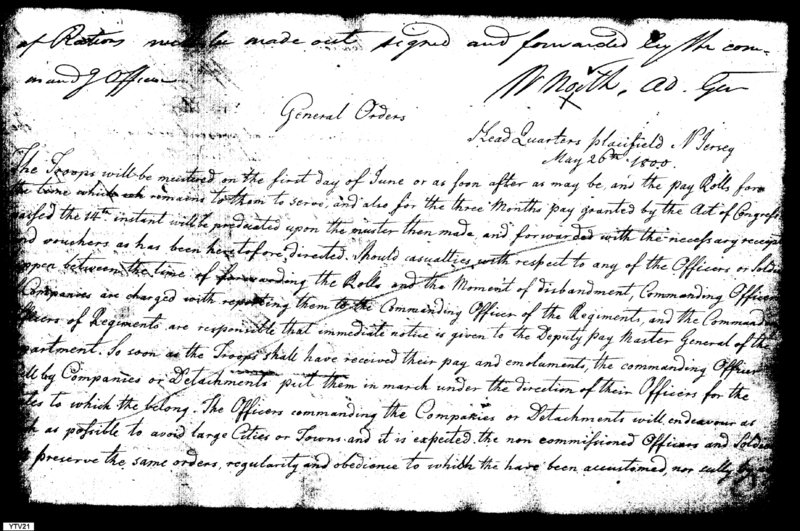 of Rations will be made out signed and forwarded by the com-
mandg Officer
W North, Ad. Gen
General Orders
Head Quarters plainfield N Jersey
May 26th 1800.
The Troops will be mustered on the first day of June or as soon after as may be, and the pay Rolls for
the time which remains to them to serve, and also for the three Months pay granted by the Act of Congress
passed the 14th instant will be predicated upon the muster then made and forwarded with the necessary receipts
and vouchers as has been heretofore directed. Should casualties with respect to any of the Officers or Soldiers
happen between the time of forwarding the Rolls and the Moment of disbandment, Commanding Officers
of Companies are charged with reporting them to the Commanding Officer of the Regiments, and the Commanding
Officers of Regiments are responsible that immediate notice is given to the Deputy Pay Master General of the
partment. So soon as the Troops shall have received their pay and emoluments, the commanding Officer
will by Companies or Detachments put them in march under the direction of their Officers for the
to which the belong. The Officers commanding the Companies or Detachments will endeavour as
as possible to avoid large Cities or Towns and it is expected the non commissioned Officers and Soldiers
preserve the same orders, regularity and obedience to which the have been accustomed, nor sully by
YTV21